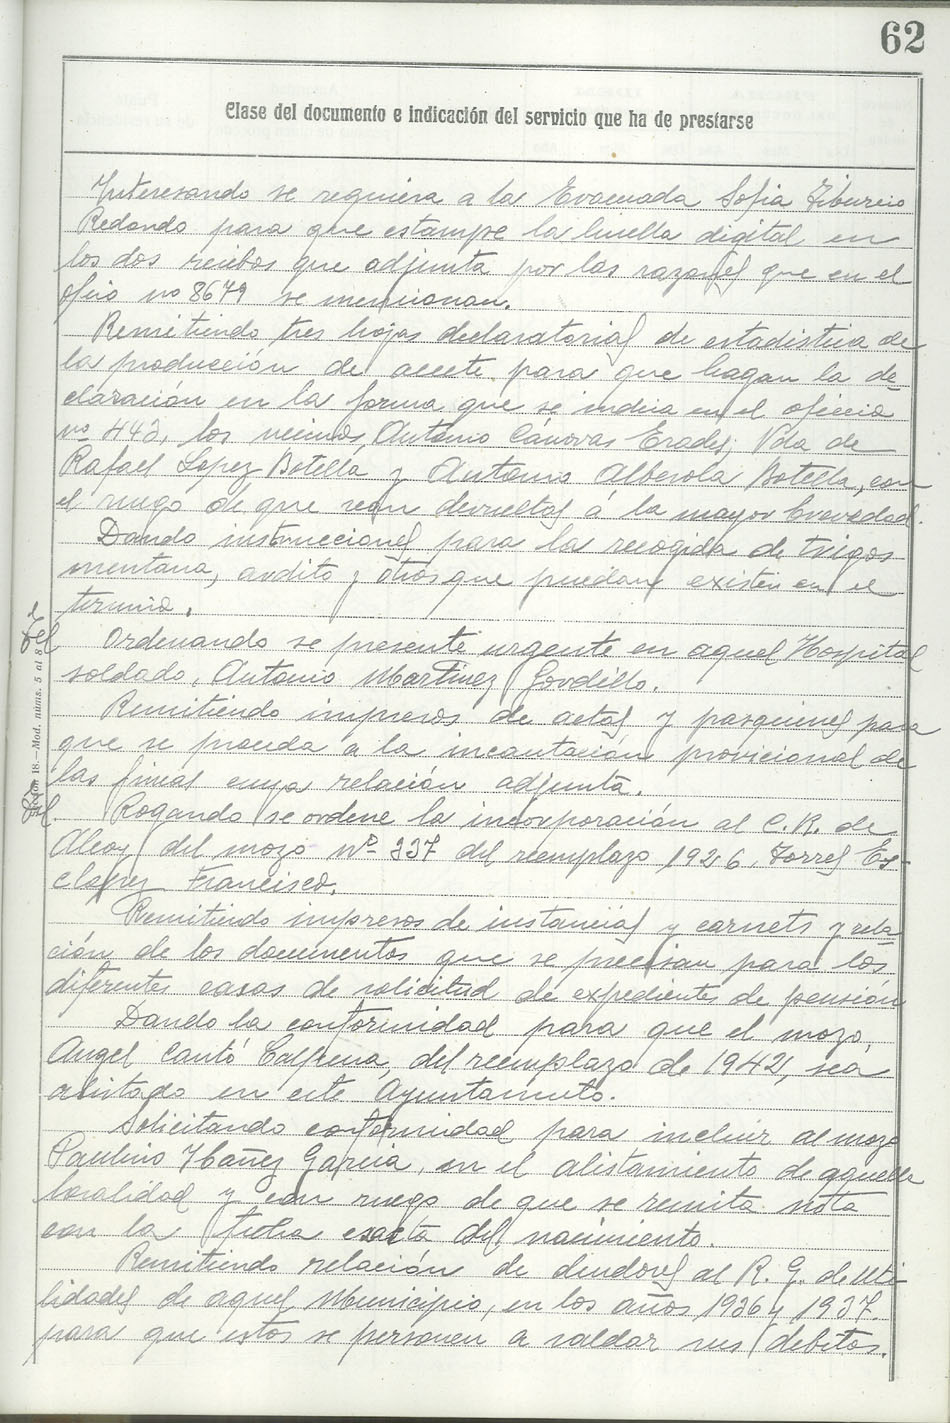 62
Clase del documento e indicación del servicio que ha de prestarse
Interesando se requiera a la Evacuada Sofia Tiburcio
Redondo para que estampe la huella digital en
los dos recibos que adjunta por las razones que en el
oficio nº 8679 se mencionan.
Remitiendo tres hojas declaratorias de estadistica de
la producción de aceite para que hagan la de-
claración en la forma que se indica en el oficio
nº 442, los vecinos, Antonio Cánovas Erades, Vda de
Rafael Lopez Botella y Antonio Alberola Botella, con
el ruego de que sean devueltas á la mayor brevedad.
Dando instrucciones para la recogida de trigos
mentana, ardito y otros que puedan existir en el
termino.
Ordenando se presente urgente en aquel Hospital
soldado, Antonio Martinez Gordillo.
Remitiendo impresos de actas y pasquines para
que se proceda a la incautación provicional de
las fincas cuya relación adjunta.
Rogando se ordene la incorporación al C.R. de
Alcoy del mozo nº 337 del reemplazo 1926, Torres Es-
clapez Francisco.
Remitiendo impresos de instancias y carnets y rela-
ción de los documentos que se precisan para los
diferentes casos de solicitud de expedientes de pensión
Dando la conformidad para que el mozo,
Angel Cantó del reemplazo de 1942, sea
alistado en este Ayuntamiento.
Solicitando conformidad para incluir al mozo
Paulino Ibañez Garcia, en el alistamiento de aquella
localidad y con ruego de que se remita nota
con la fecha exacta del nacimiento.
Remitiendo relación de deudores al R. G. de Uti-
lidades de aquel Municipio, en los años 1936 y 1937.
para que estos se personen a saldar sus debitos.
18.—Mod. núms. 5 al 8